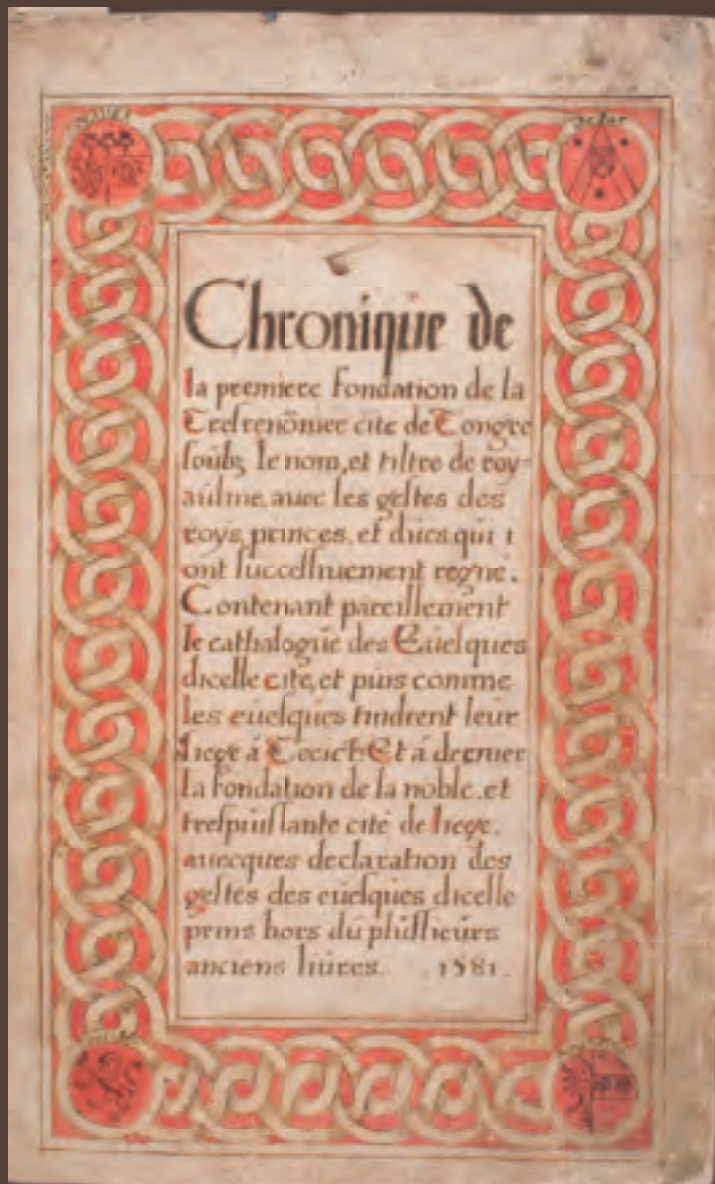 Chronique de
la premiere fondation de la
Tresrenōmee cite de Tongre
soubz le nom, et tiltre de roy-
aulme, auec les gestes des
roys, princes, et ducs qui i
ont successiuement regné.
Contenant pareillement
le cathalogue des Euesques
dicelle cité, et puis comme
les euesques tindrent leur
siege à Et à dernier
la fondation de la noble, et
trespuissante cité de liege.
auecques declaration des
gestes des euesques dicelle
prins hors du plussieurs
anciens liures. 1581.